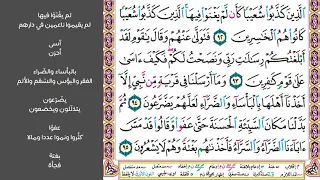 ٱلَّذِينَ كَذَّبُوا۟ شُعَيْبًا كَأَن لَّمْ يَغْنَوْا۟ فِيهَا ٱلَّذِينَ كَذَّبُوا۟ شُعَيْبًا
كَانُوا۟ هُمُ ٱلْخَـٰسِرِينَ ٩٢ فَتَوَلَّىٰ عَنْهُمْ وَقَالَ يَـٰقَوْمِ لَقَدْ
أَبْلَغْتُكُمْ رِسَـٰلَـٰتِ رَبِّى وَنَصَحْتُ لَكُمْ فَكَيْفَ ءَاسَىٰ
عَلَىٰ قَوْمٍ كَـٰفِرِينَ ٩٣ وَمَآ أَرْسَلْنَا فِى قَرْيَةٍ مِّن نَّبِىٍّ إِلَّآ
أَخَذْنَآ أَهْلَهَا بِٱلْبَأْسَآءِ وَٱلضَّرَّآءِ لَعَلَّهُمْ يَضَّرَّعُونَ ٩٤ ثُمَّ
بَدَّلْنَا مَكَانَ ٱلسَّيِّئَةِ ٱلْحَسَنَةَ حَتَّىٰ عَفَوا۟ وَّقَالُوا۟ قَدْ مَسَّ
ءَابَآءَنَا ٱلضَّرَّآءُ وَٱلسَّرَّآءُ فَأَخَذْنَـٰهُم بَغْتَةً وَهُمْ لَا يَشْعُرُونَ ٩٥
لم يغنوا فيها
لم يقيموا ناعمين في دارهم
آسى
أحزن
بالبأساء والضراء
الفقر والبؤس والسقم والألم
يضرعون
يتذللون ويخضعون
عفوا
كثروا ونموا عددا ومالا
بغتة
فجأة